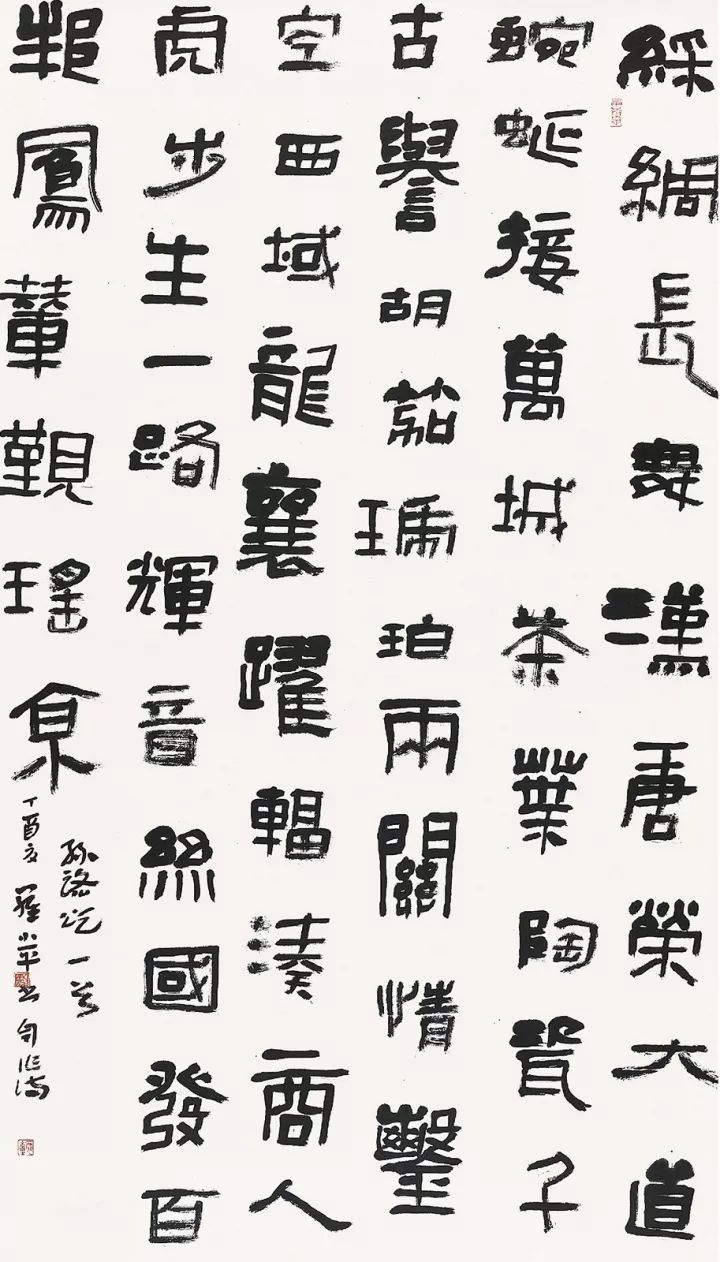 綵綢長舞漢唐榮大道
蜿蜒接萬城茶葉陶瓷千
古譽胡茄瑪珀兩關情鑿
空西域龍襄躍輻湊商人
虎步生一路輝音絲國發百
邦鳳輦覲瑤京
絲路一首
丁酉夏羅小平書自作詩